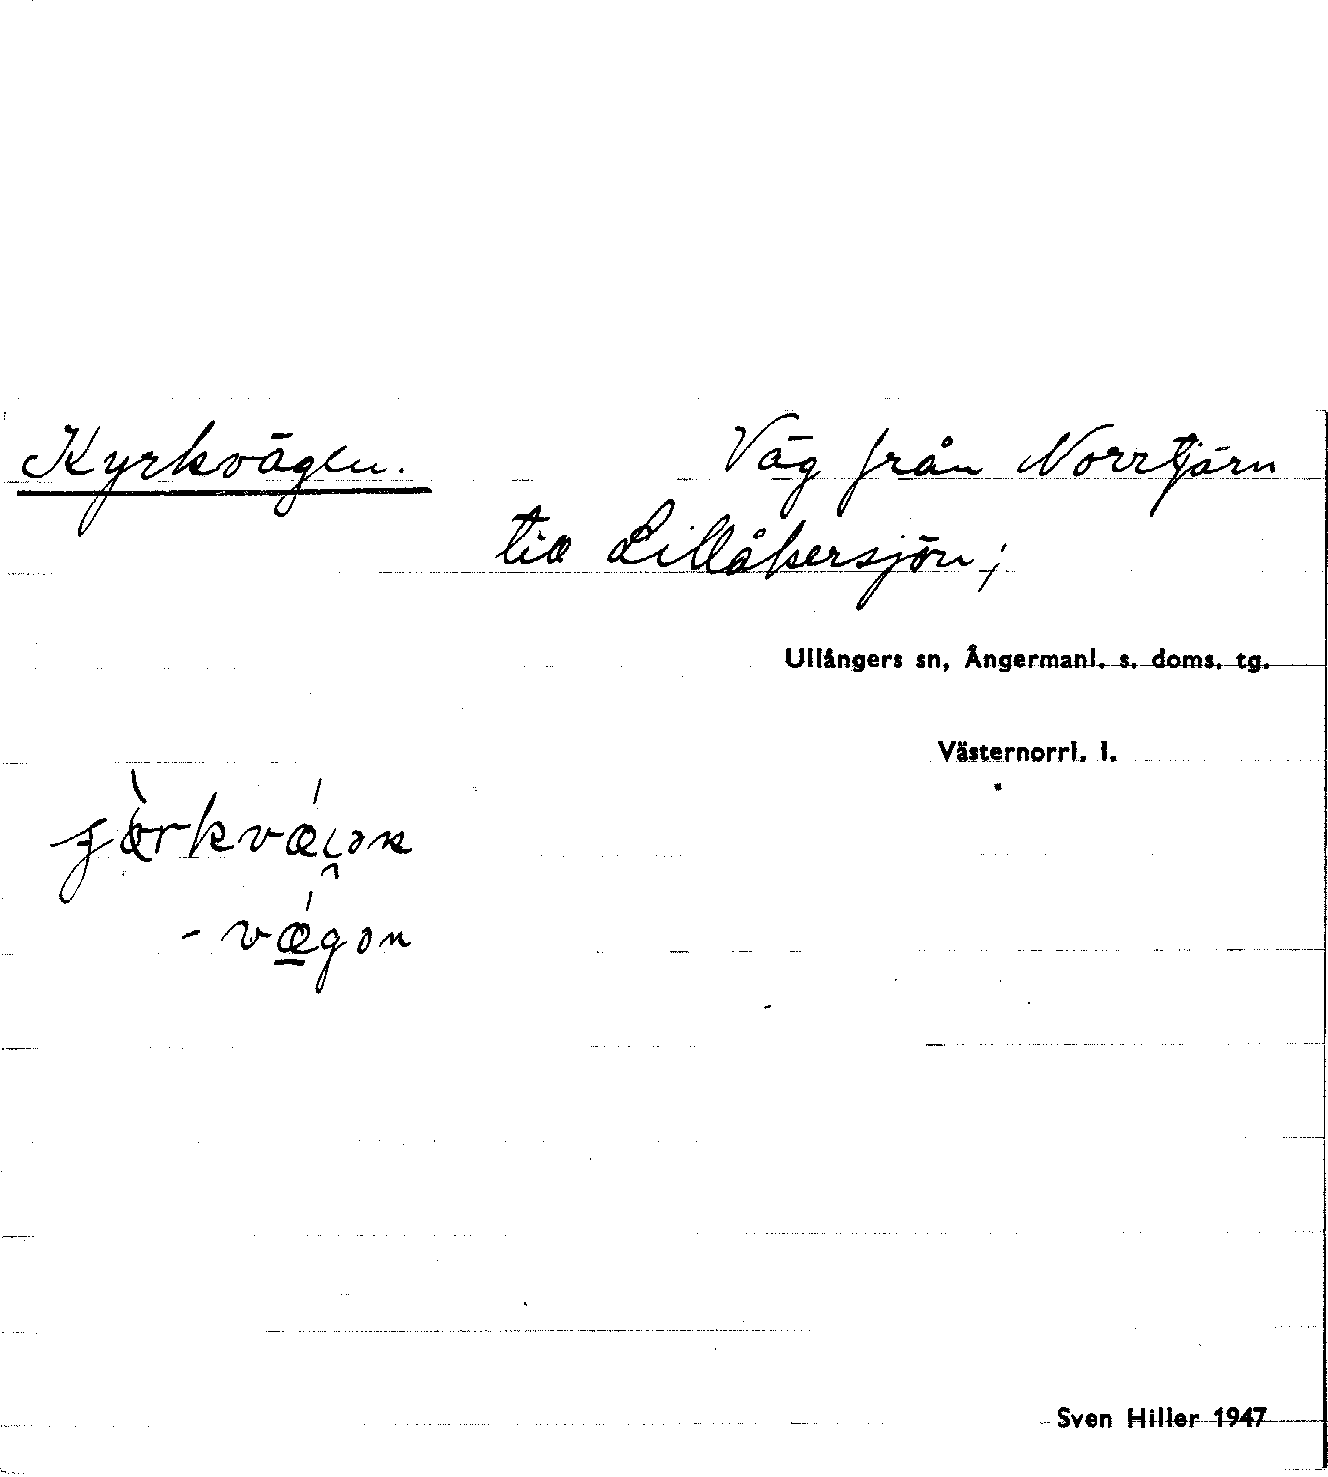 Kyrkvägen. Väg från Norrtjärn
till Lillåkersjön;
Ullångers sn, Ångermanl. s. doms. tg.
Västernorrl. l.
Sven Hiller 1947